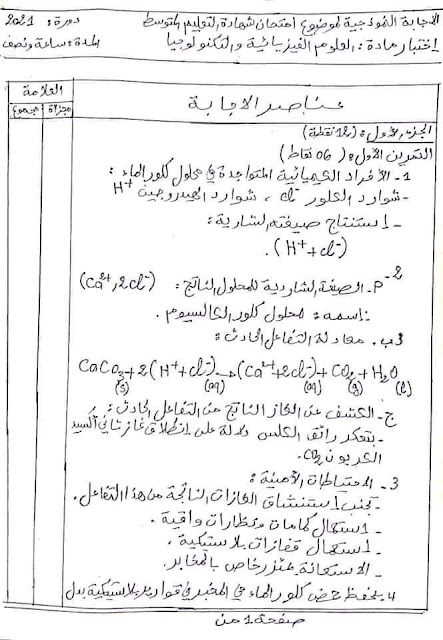 الإجابة النموذجية لموضوع امتحان شهادة التعليم المتوسط دورة: 2021
إختبار مادة: العلوم الفيزيائية والتكنولوجيا المدة: ساعة ونصف
عناصر الإجابة العلامة
مجزأة مجموع
الجزء الأول: (12 نقطة)
التمرين الأول: (06 نقاط)
1- الأفراد الكيميائية المتواجدة في محلول كلور الماء:
- شوارد الكلور Cl⁻ ، شوارد الهيدروجين H⁺
- إستنتاج صيغته الشاردية:
(H⁺+Cl⁻).
2- P- الصيغة الشاردية للمحلول الناتج: (Ca²⁺, 2Cl⁻)
إسمه: محلول كلور الكالسيوم.
ب. معادلة التفاعل الحادث:
CaCO₃(s)+2(H⁺+Cl⁻)(aq)→(Ca²⁺+2Cl⁻)(aq)+CO₂(g)+H₂O(l)
ج- الكشف عن الغاز الناتج من التفاعل الحادث:
- بتعكر رائق الكلس دلالة على إنطلاق غاز ثاني أكسيد
الكربون CO₂.
3- الاحتياطات الأمنية:
- تجنب استنشاق الغازات الناتجة من هذا التفاعل.
- استعمال كمامات ونظارات واقية.
- استعمال قفازات بلاستيكية.
- الاستعانة بمئزر خاص بالمخابر.
4- يحفظ حمض كلور الماء في المخبر في قوارير بلاستيكية بدل
صفحة 1 من